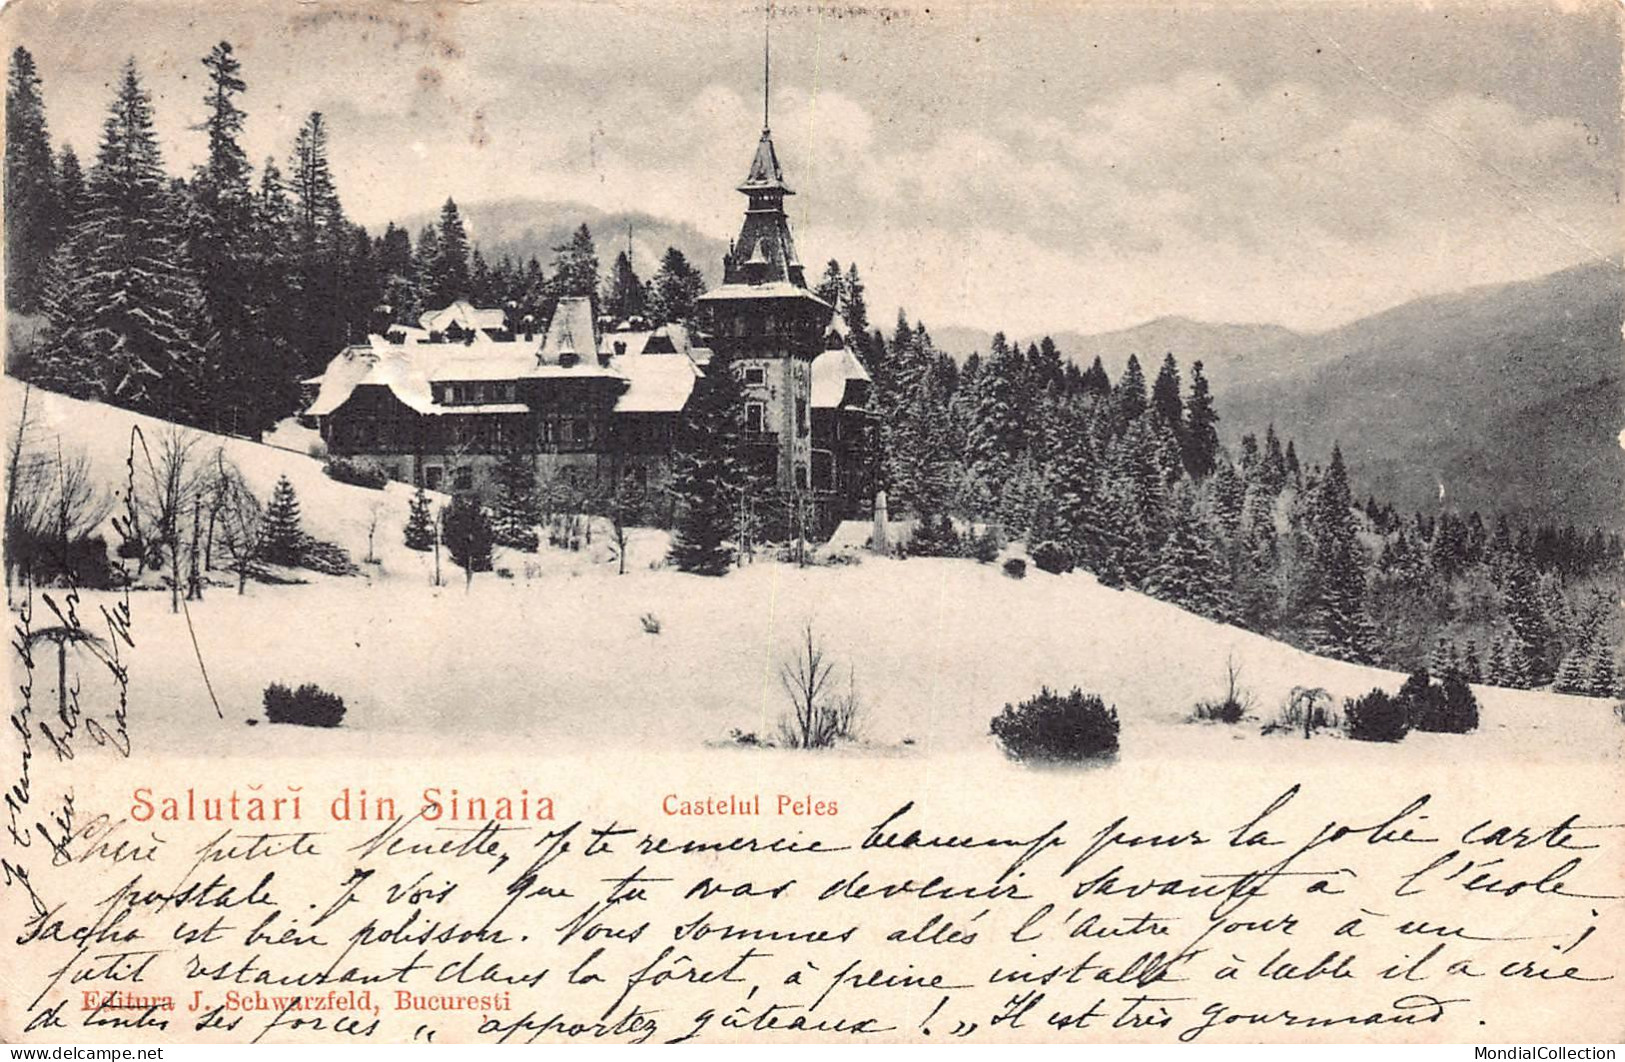 Salutări din Sinaia
Castelul Peles
Chère petite Ninette, Je te remercie beaucoup pour la jolie carte
postale. Je vois que tu vas devenir savante à l'école
Sacha est bien polisson. Nous sommes allés l'autre jour à un
petit restaurant dans la fôret, à peine installé à table il a crié
de toutes ses forces „ apportez gâteaux ! „ Il est très gourmand.
Editura J. Schwarzfeld, Bucuresti
Je t'embrasse
bien bien fort
Tante
MondialCollection.com